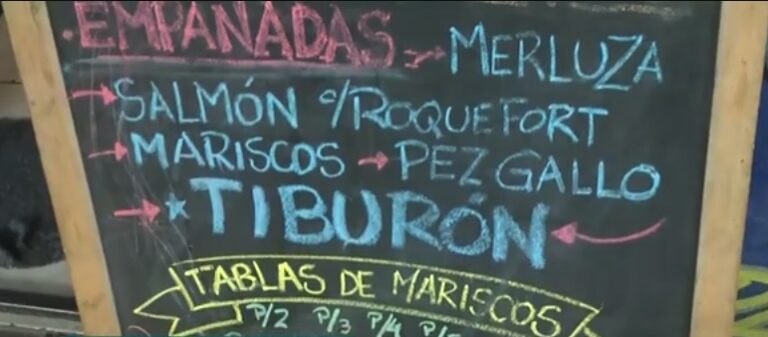 EMPANADAS → MERLUZA
→ SALMÓN c/ROQUEFORT
→ MARISCOS → PEZ GALLO
→ * TIBURÓN ←
TABLAS DE MARISCOS
P/2 P/3 P/4